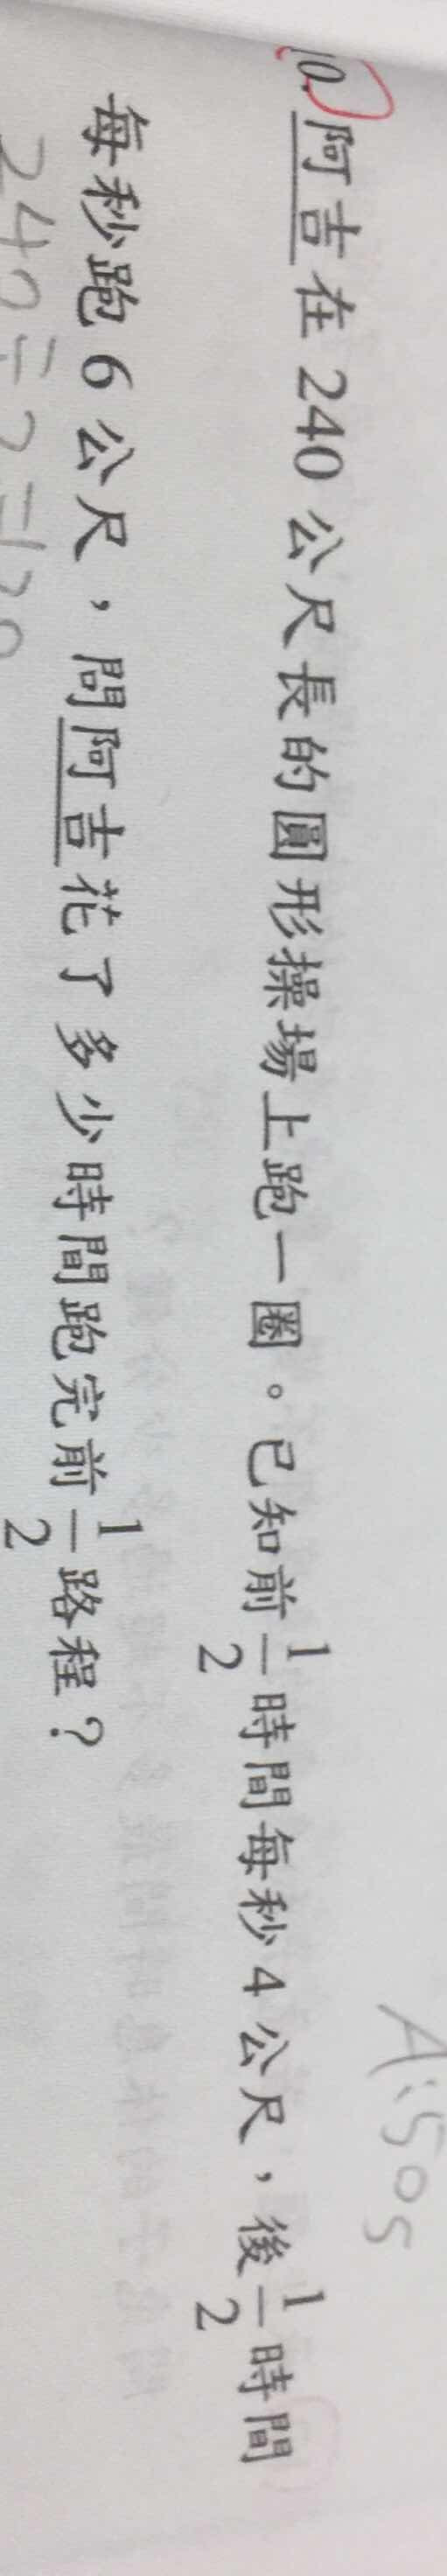 A:50s
10. 阿吉在 240 公尺長的圓形操場上跑一圈。已知前 1/2 時間每秒 4 公尺，後 1/2 時間
每秒跑 6 公尺，問阿吉花了多少時間跑完前 1/2 路程？
240÷2=120